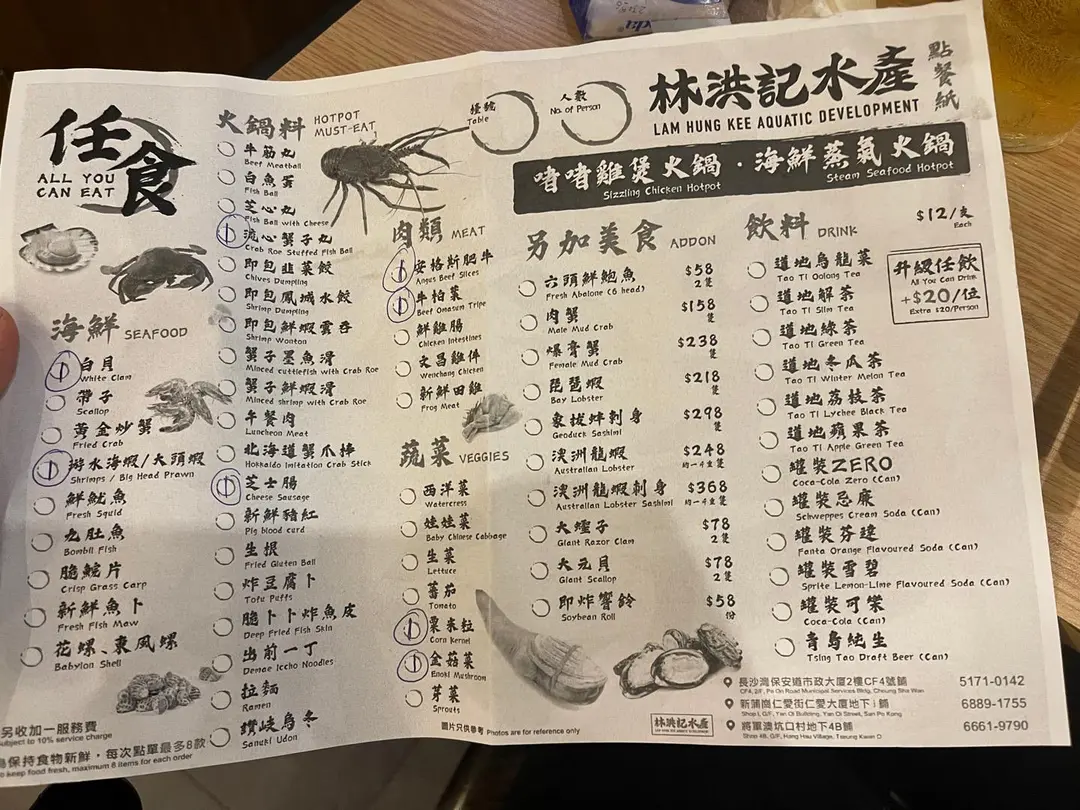 任食
ALL YOU
CAN EAT
海鮮 SEAFOOD
白貝
White Clam
帶子
Scallop
黃金炒蟹
Fried Crab
游水海蝦/大頭蝦
Shrimps / Big Head Prawn
鮮魷魚
Fresh Squid
九肚魚
Bombil Fish
脆鯇片
Crisp Grass Carp
新鮮魚卜
Fresh Fish Maw
花螺、東風螺
Babylon Shell
另收加一服務費
subject to 10% service charge
保持食物新鮮，每次點單最多8款
to keep food fresh, maximum 8 items for each order
火鍋料 HOTPOT
MUST-EAT
牛筋丸
Beef Meatball
白魚蛋
Fish Ball
芝心丸
Fish Ball with Cheese
流心蟹子丸
Crab Roe Stuffed Fish Ball
即包韭菜餃
Chives Dumpling
即包鳳城水餃
Shrimp Dumpling
即包鮮蝦雲吞
Shrimp Wonton
蟹子墨魚滑
Minced cuttlefish with Crab Roe
蟹子鮮蝦滑
Minced shrimp with Crab Roe
午餐肉
Luncheon Meat
北海道蟹爪棒
Hokkaido Imitation Crab Stick
芝士腸
Cheese Sausage
新鮮豬紅
Pig blood curd
生根
Fried Gluten Ball
炸豆腐卜
Tofu Puffs
脆卜卜炸魚皮
Deep Fried Fish Skin
出前一丁
Demae Iccho Noodles
拉麵
Ramen
讚岐烏冬
Sanuki Udon
肉類 MEAT
安格斯肥牛
Angus Beef Slices
牛柏葉
Beef Omasum Tripe
鮮雞腸
Chicken Intestines
文昌雞件
Wenchang Chicken
新鮮田雞
Frog Meat
蔬菜 VEGGIES
西洋菜
Watercress
娃娃菜
Baby Chinese Cabbage
生菜
Lettuce
蕃茄
Tomato
粟米粒
Corn Kernel
金菇菜
Enoki Mushroom
芽菜
Sprouts
圖片只供參考 Photos are for reference only
檯號
Table
人數
No. of Person
林洪記水產
LAM HUNG KEE AQUATIC DEVELOPMENT
點餐紙
啫啫雞煲火鍋・海鮮蒸氣火鍋
Sizzling Chicken Hotpot
Steam Seafood Hotpot
另加美食 ADDON
六頭鮮鮑魚 $58
Fresh Abalone (6 head) 2隻
肉蟹 $158
Male Mud Crab 隻
爆膏蟹 $238
Female Mud Crab 隻
琵琶蝦 $218
Bay Lobster 隻
象拔蚌刺身 $298
Geoduck Sashimi 隻
澳洲龍蝦 $248
Australian Lobster
澳洲龍蝦刺身 $368
Australian Lobster Sashimi
大蟶子 $78
Giant Razor Clam 2隻
大元貝 $78
Giant Scallop 2隻
即炸響鈴 $58
Soybean Roll 份
林洪記水產
飲料 DRINK
$12/支
Each
升級任飲
All You Can Drink
+$20/位
Extra $20/Person
道地烏龍茶
Tao Ti Oolong Tea
道地解茶
Tao Ti Slim Tea
道地綠茶
Tao Ti Green Tea
道地冬瓜茶
Tao Ti Winter Melon Tea
道地荔枝茶
Tao Ti Lychee Black Tea
道地蘋果茶
Tao Ti Apple Green Tea
罐裝ZERO
Coca-Cola Zero (Can)
罐裝忌廉
Schweppes Cream Soda (Can)
罐裝芬達
Fanta Orange Flavoured Soda (Can)
罐裝雪碧
Sprite Lemon-Lime Flavoured Soda (Can)
罐裝可樂
Coca-Cola (Can)
青島純生
Tsing Tao Draft Beer (Can)
長沙灣保安道市政大廈2樓CF4號舖 5171-0142
CF4, 2/F, Po On Road Municipal Services Bldg, Cheung Sha Wan
新蒲崗仁愛街仁愛大廈地下i舖 6889-1755
Shop I, G/F, Yan Oi Building, Yan Oi Street, San Po Kong
將軍澳坑口村地下4B舖 6661-9790
Shop 4B, G/F, Hang Hau Village, Tseung Kwan O